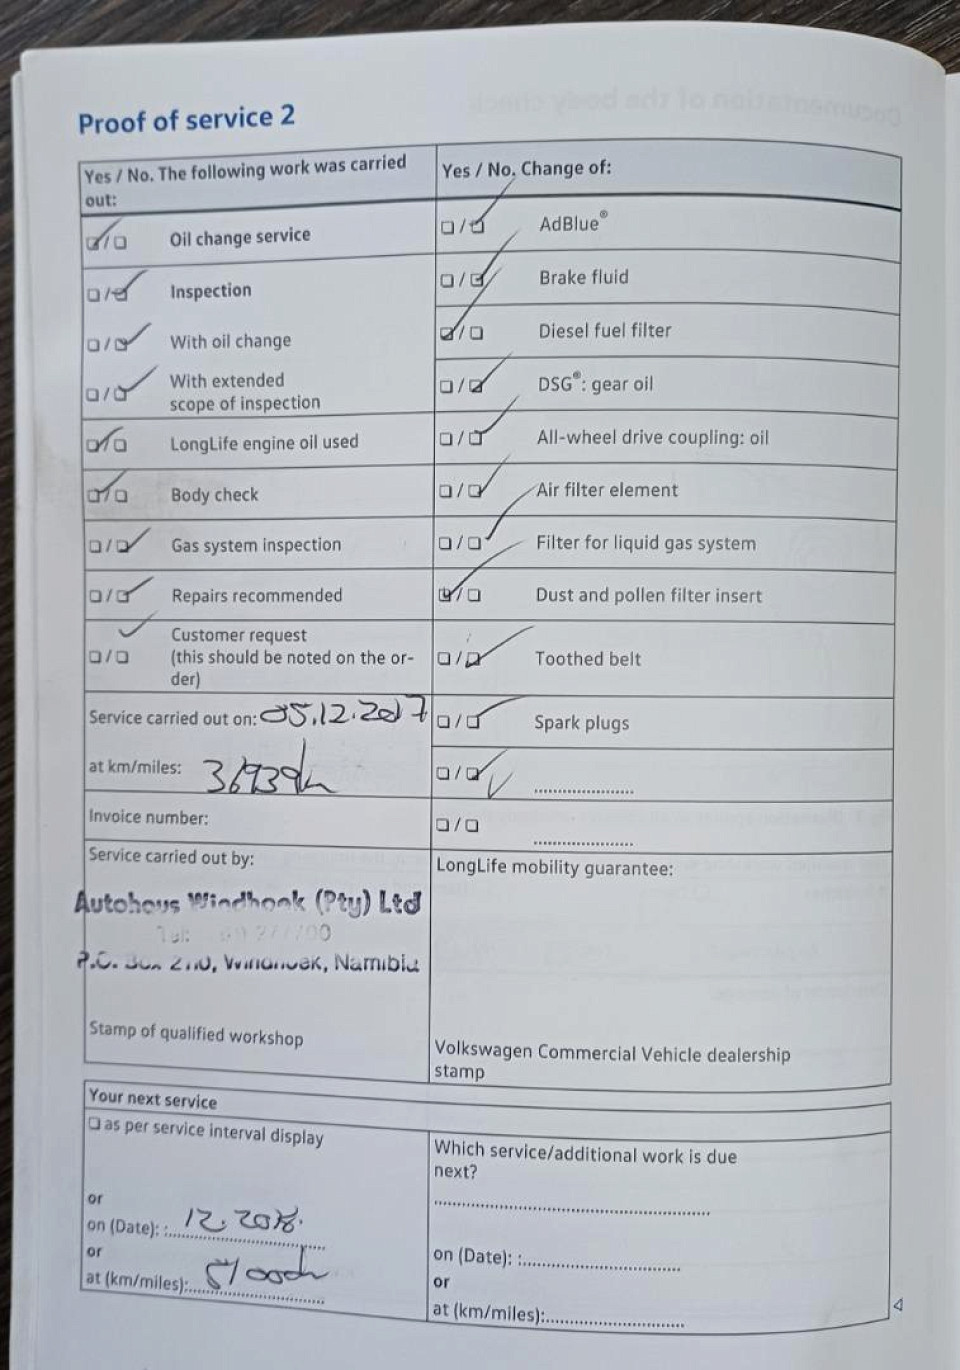 Proof of service 2
Yes / No. The following work was carried
out:
☑/☐ Oil change service
☐/☑ Inspection
☐/☑ With oil change
☐/☑ With extended
scope of inspection
☑/☐ LongLife engine oil used
☑/☐ Body check
☐/☑ Gas system inspection
☐/☑ Repairs recommended
☐/☐ Customer request
(this should be noted on the or-
der)
Service carried out on: 05.12.2017
at km/miles:
Invoice number:
Service carried out by:
Autohaus Windhoek (Pty) Ltd
Windhoek, Namibia
Stamp of qualified workshop
Yes / No. Change of:
☐/☑ AdBlue®
☐/☑ Brake fluid
☑/☐ Diesel fuel filter
☐/☑ DSG®: gear oil
☐/☑ All-wheel drive coupling: oil
☐/☑ Air filter element
☐/☑ Filter for liquid gas system
☑/☐ Dust and pollen filter insert
☐/☑ Toothed belt
☐/☑ Spark plugs
☐/☑ ....................
☐/☐ ....................
LongLife mobility guarantee:
Volkswagen Commercial Vehicle dealership
stamp
Your next service
☐ as per service interval display
or
on (Date): 12.2018.
or
at (km/miles):
Which service/additional work is due
next?
on (Date): :
or
at (km/miles):